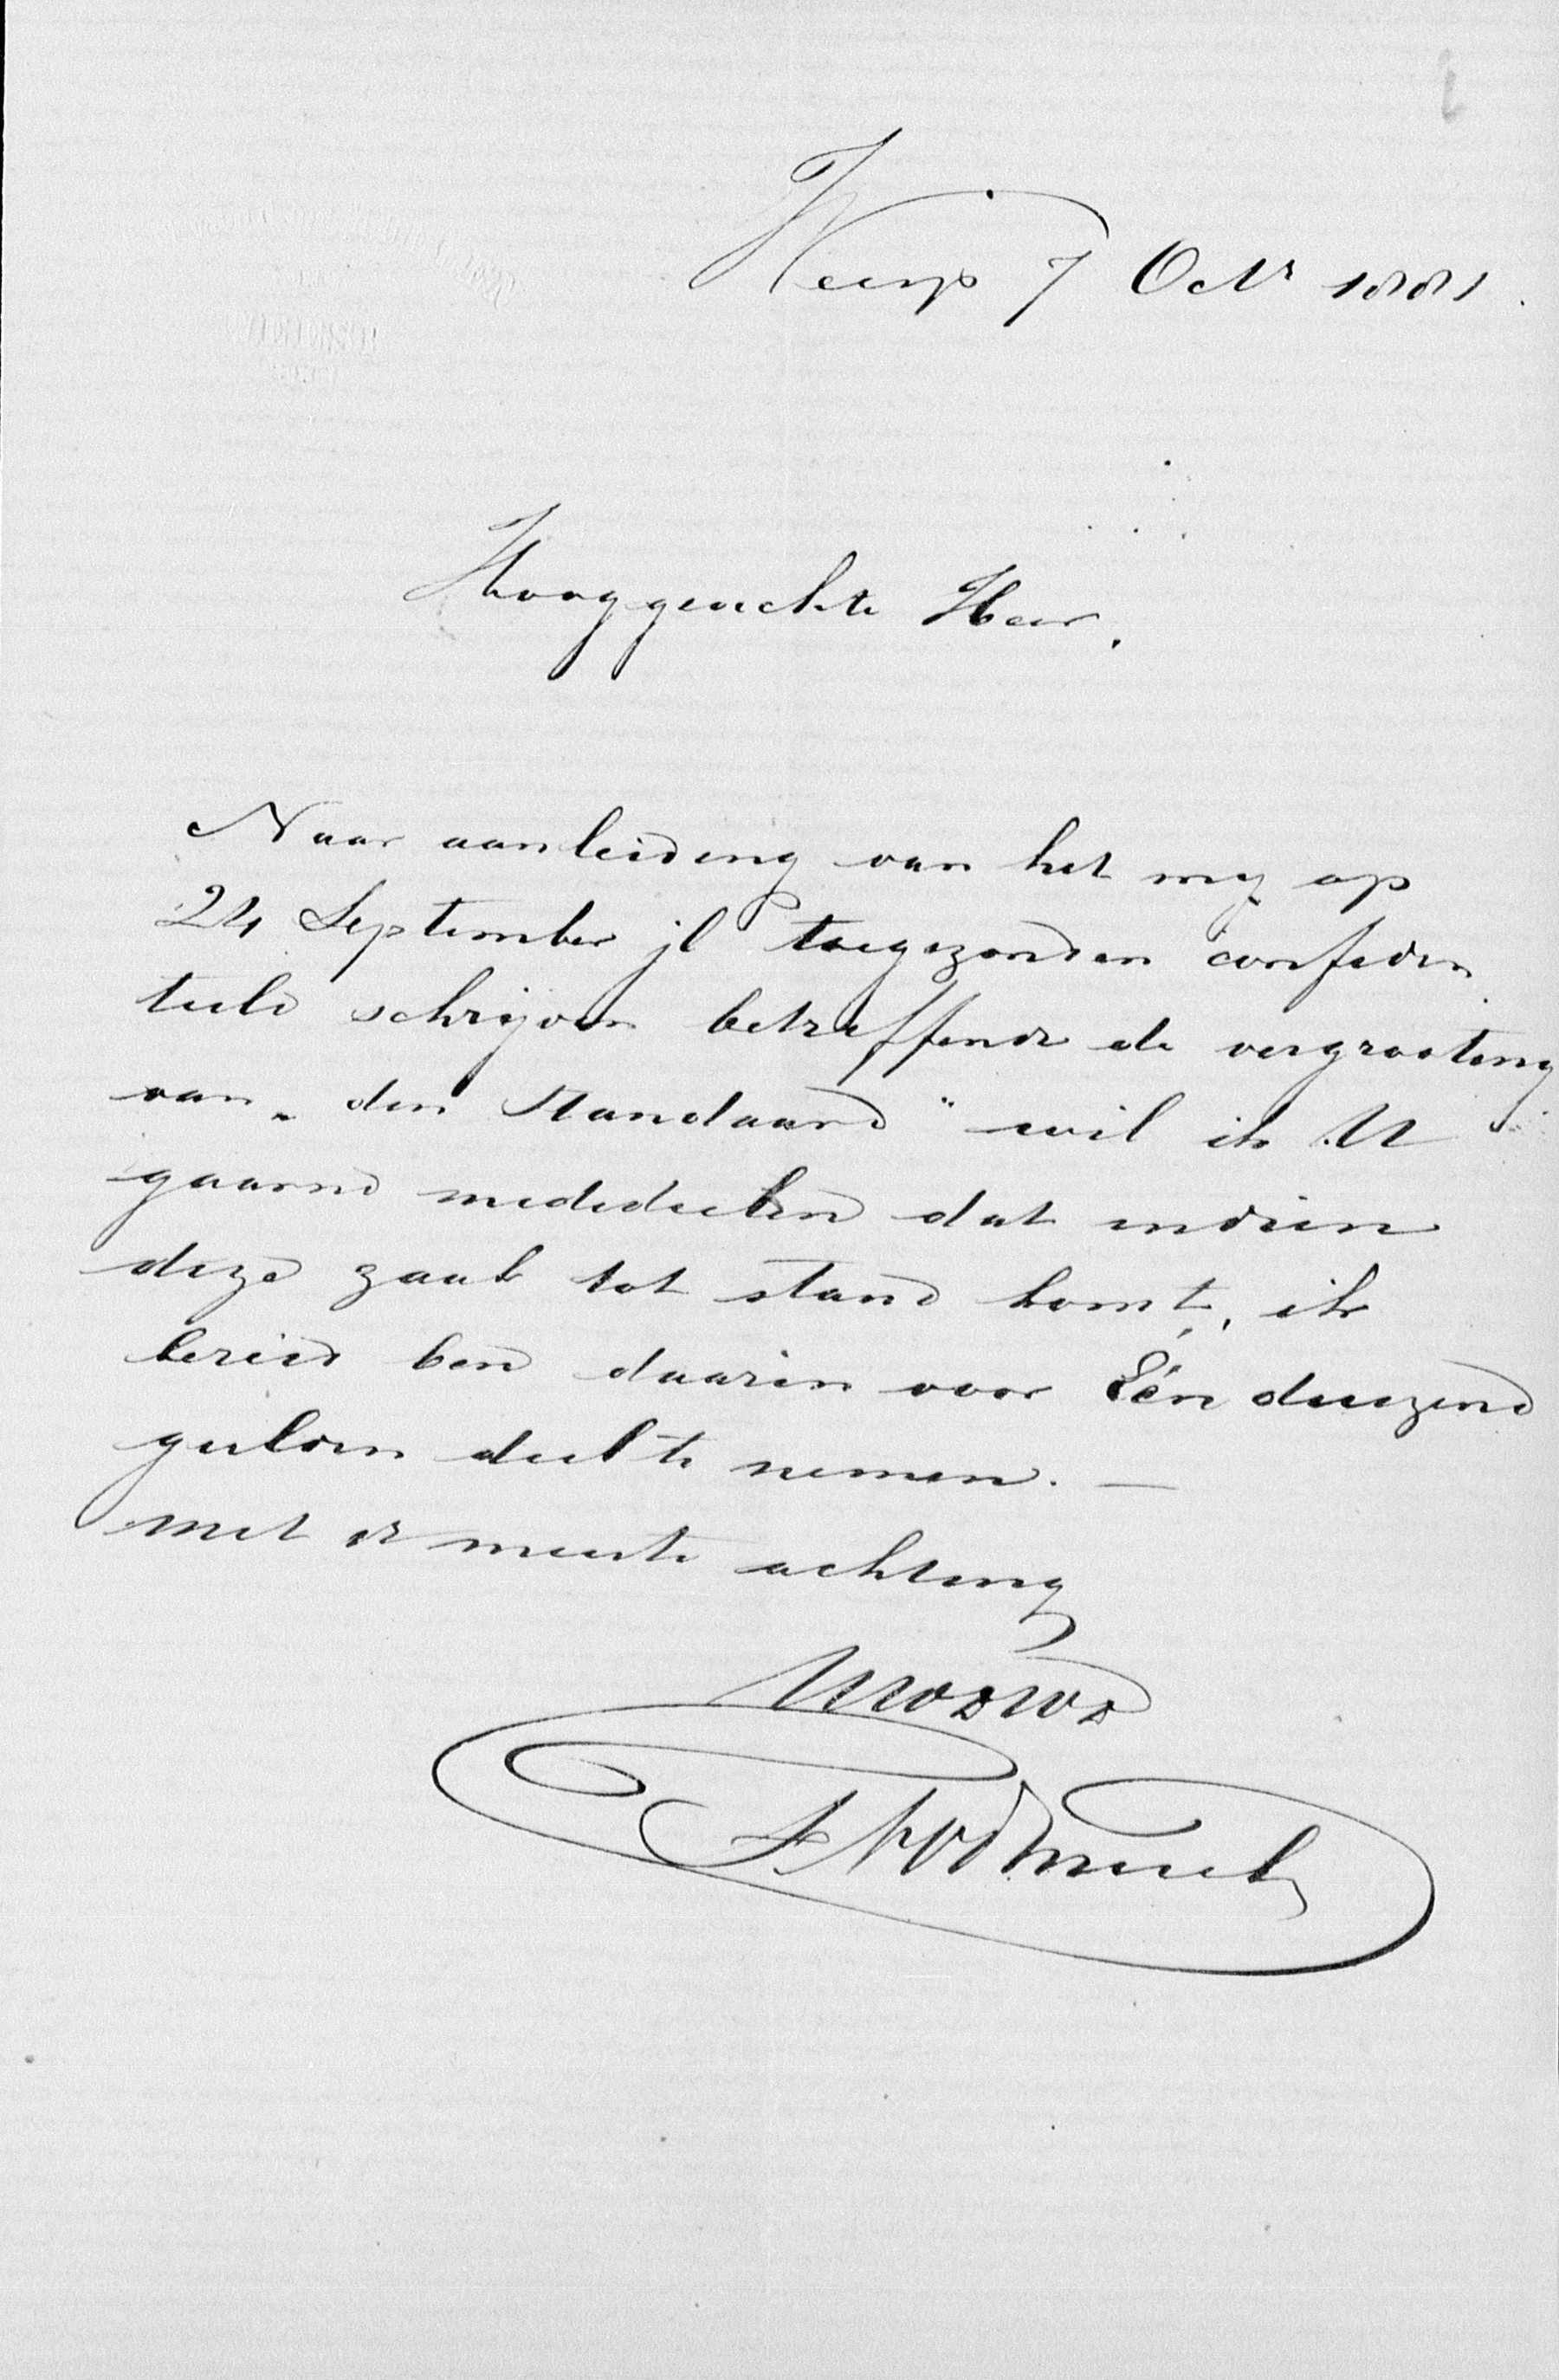 Weesp 7 Octr 1881.
Hooggeachte Heer.
Naar aanleiding van het my op
24 September jl toegezonden confiden
tiele schrijven betreffende de vergrooting
van „den Standaard" wil ik U
gaarne mededeelen dat indien
deze zaak tot stand komt, ik
bereid ben daarin voor Eén duizend
gulden deel te nemen. —
met de meeste achting
UwDwD